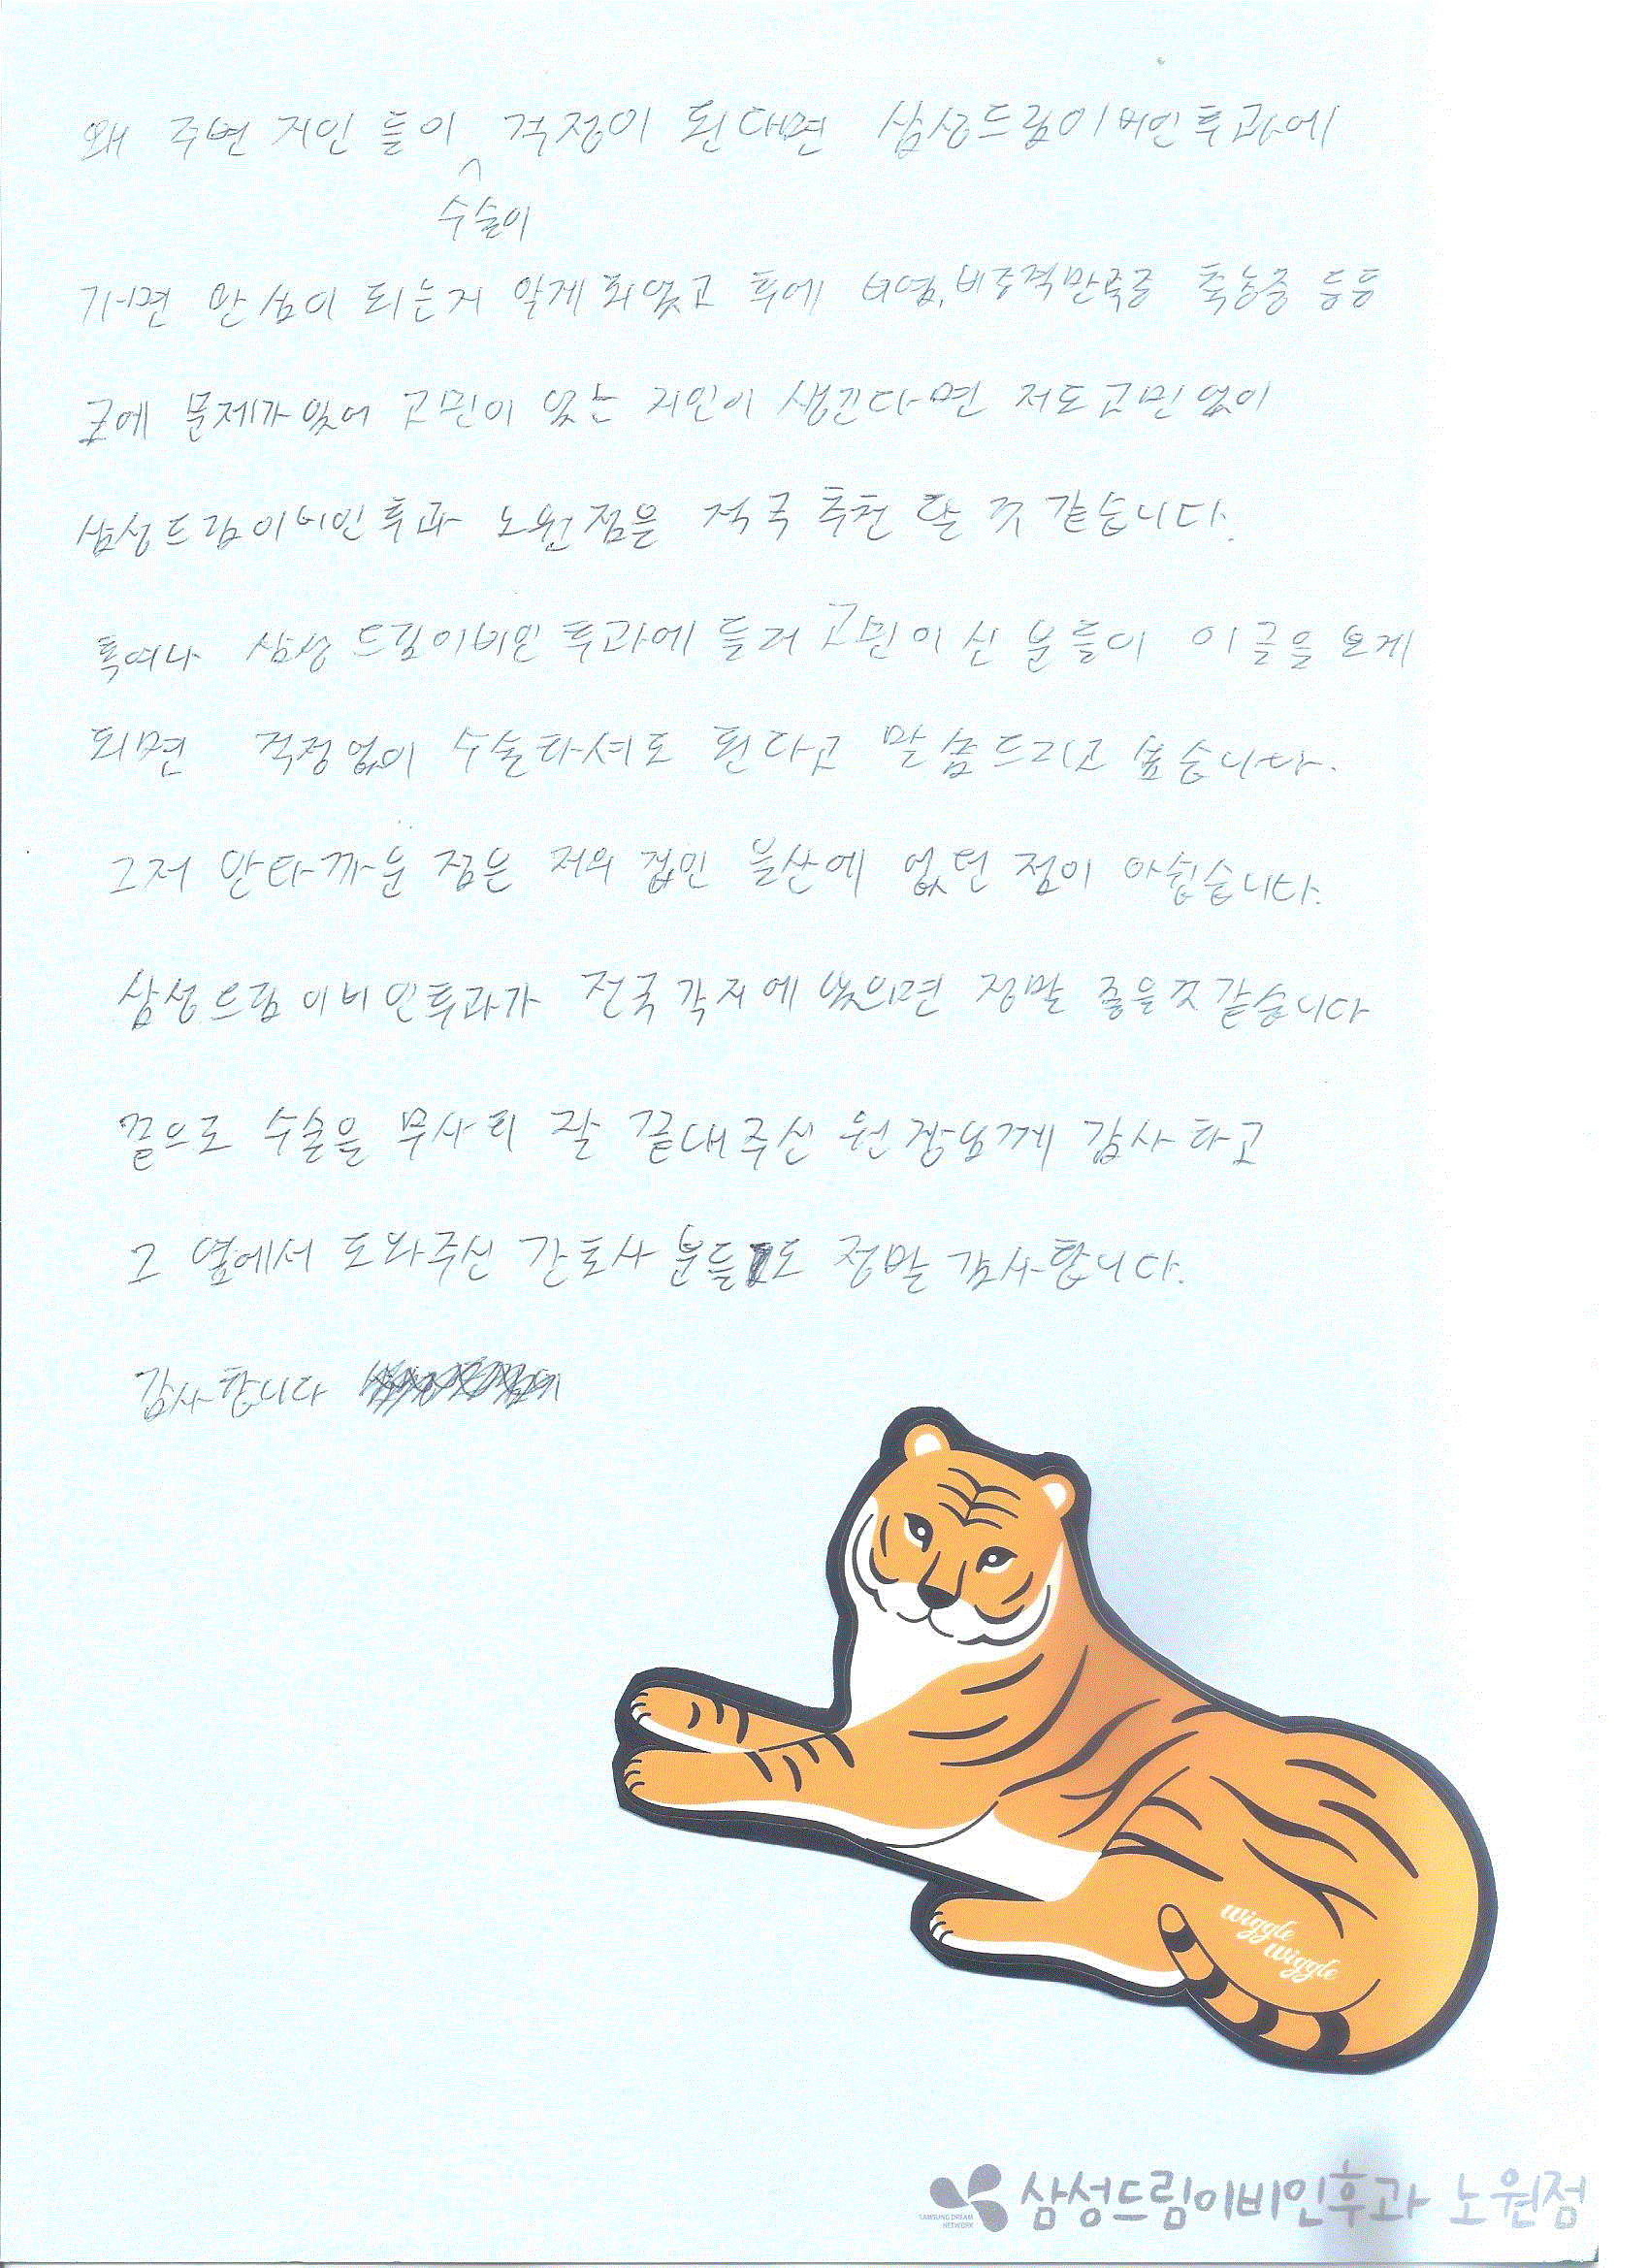 왜 주변 지인 들이 걱정이 된다면 삼성드림이비인후과에
수술이
가면 안심이 되는지 알게 되었고 후에 비염, 비중격만곡증 축농증 등등
코에 문제가 있어 고민이 있는 지인이 생긴다면 저도 고민 없이
삼성드림이비인후과 노원점을 적극 추천 할 것 같습니다.
혹여나 삼성드림이비인후과에 들러 고민이신 분들이 이 글을 보게
되면 걱정없이 수술하셔도 된다고 말씀드리고 싶습니다.
그저 안타까운 점은 저의 집인 울산에 없던 점이 아쉽습니다.
삼성드림이비인후과가 전국 각지에 있으면 정말 좋을것같습니다
끝으로 수술을 무사히 잘 끝내주신 원장님께 감사하고
그 옆에서 도와주신 간호사 분들도 정말 감사합니다.
감사합니다
wiggle
wiggle
SAMSUNG DREAM
NETWORK
삼성드림이비인후과 노원점